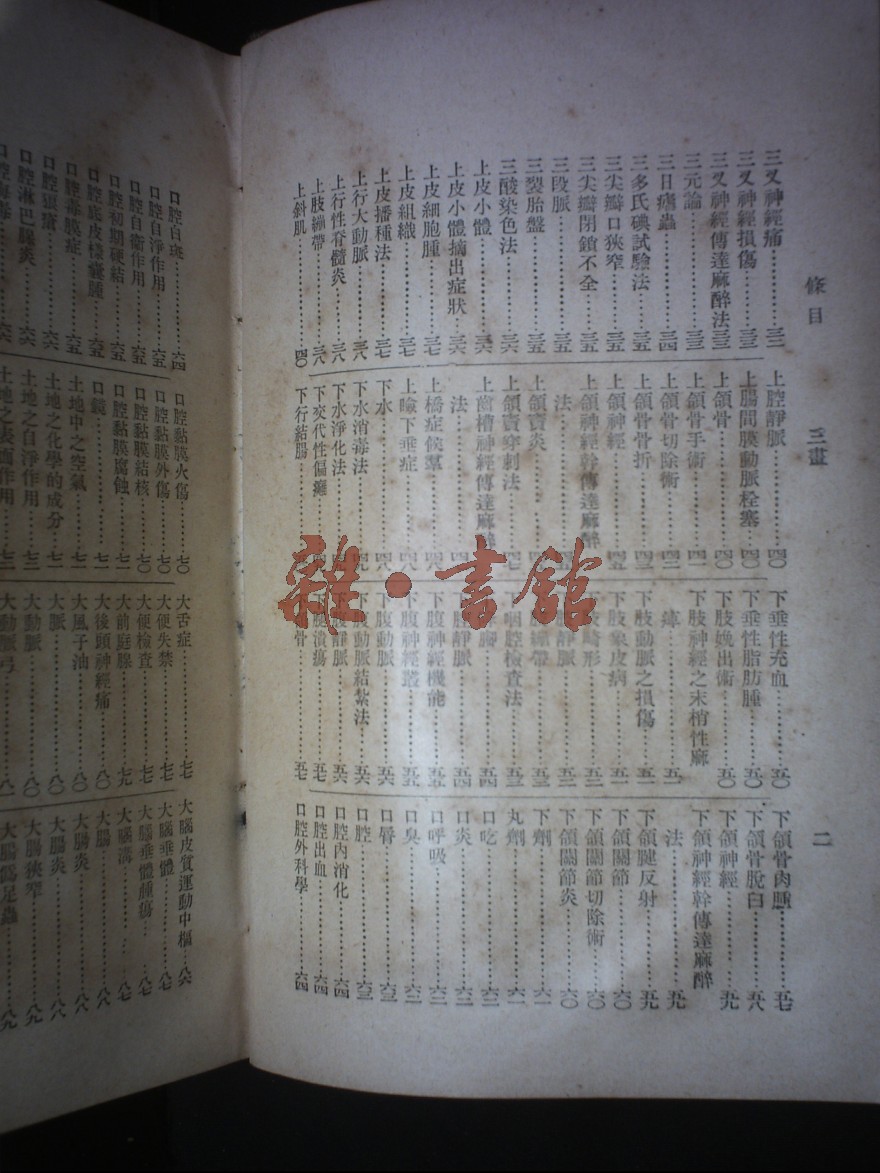 條目
三畫
二
三叉神經痛……三二
三叉神經損傷……三三
三叉神經傳達麻醉法……三三
三元論……三三
三日瘧蟲……三四
三多氏碘試驗法……三五
三尖瓣口狹窄……三五
三尖瓣閉鎖不全……三五
三段脈……三五
三裂胎盤……三五
三酸染色法……三六
上皮小體……三六
上皮小體摘出症狀……三六
上皮細胞腫……三七
上皮組織……三七
上皮播種法……三七
上行大動脈……三八
上行性脊髓炎……三八
上肢繃帶……三八
上斜肌……四〇
上腔靜脈……四〇
上腸間膜動脈栓塞……四〇
上頜骨……四〇
上頜骨手術……四一
上頜骨切除術……四二
上頜骨骨折……四三
上頜神經……四五
上頜神經幹傳達麻醉
法
上頜竇炎
上頜竇穿刺法……四七
上齒槽神經傳達麻醉
法
上橋症候羣……四八
上瞼下垂症……四八
下水……四八
下水消毒法……四九
下水淨化法
下交代性偏癱
下行結腸
下垂性充血……五〇
下垂性脂肪腫……五〇
下肢娩出術……五〇
下肢神經之末梢性麻
痺……五一
下肢動脈之損傷……五一
下肢象皮病……五二
下肢畸形……五二
靜脈……五二
繃帶……五三
咽腔檢查法……五三
五四
靜脈……五四
下腹神經機能……五五
下腹神經叢……五五
下腹動脈……五六
下腹動脈結紮法……五六
下腹靜脈……五六
下腿潰瘍……五七
骨……五七
下頜骨肉腫……五七
下頜骨脫臼……五八
下頜神經……五九
下頜神經幹傳達麻醉
法……五九
下頜腱反射……五九
下頜關節……六〇
下頜關節切除術……六〇
下頜關節炎……六〇
下劑……六一
丸劑……六一
口吃……六二
口炎……六二
口呼吸……六二
口臭……六三
口唇……六三
口腔……六三
口腔內消化……六四
口腔出血……六四
口腔外科學……六四
口腔白斑……六四
口腔自淨作用……六五
口腔自衛作用……六五
口腔初期硬結……六五
口腔底皮樣囊腫……六五
口腔毒膜症……六五
口腔軍瘡……六六
口腔淋巴腺炎……六六
口腔黏膜火傷……七〇
口腔黏膜外傷……七〇
口腔黏膜結核……七〇
口腔黏膜腐蝕……七一
口鏡……七一
土地中之空氣……七一
土地之化學的成分……七一
土地之自淨作用……七二
土地之表面作用……七二
大舌症……七七
大便失禁……七七
大便檢查……七七
大前庭腺……七九
大後頭神經痛……八〇
大風子油……八〇
大脈……八〇
大動脈……八〇
大動脈弓……八一
大腦皮質運動中樞……八六
大腦垂體……八七
大腦垂體腫瘍……八七
大腦溝……八七
大腸……八八
大腸炎……八八
大腸炎……八八
大腸狹窄……八九
雜·書館